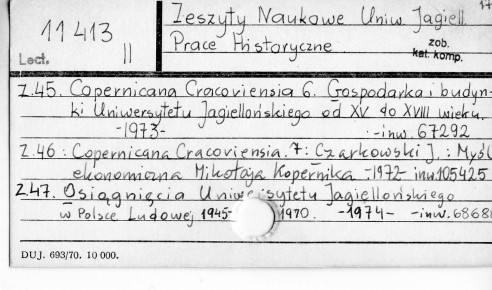 17
Zeszyty Naukowe Uniw. Jagiell.
11413
II
Lect.
Prace Historyczne
zob.
kat. komp.
Z.45. Copernicana Cracoviensia 6. Gospodarka i budyn-
ki Uniwersytetu Jagiellońskiego od XV do XVIII wieku.
-1973- -inw. 67292
Z.46: Copernicana Cracoviensia. 7: Czarkowski J.: Myśl
ekonomiczna Mikołaja Kopernika -1972- inw. 105425
Z.47. Osiągnięcia Uniwersytetu Jagiellońskiego
w Polsce Ludowej 1945- 1970. -1974- -inw. 6868
DUJ. 693/70. 10 000.